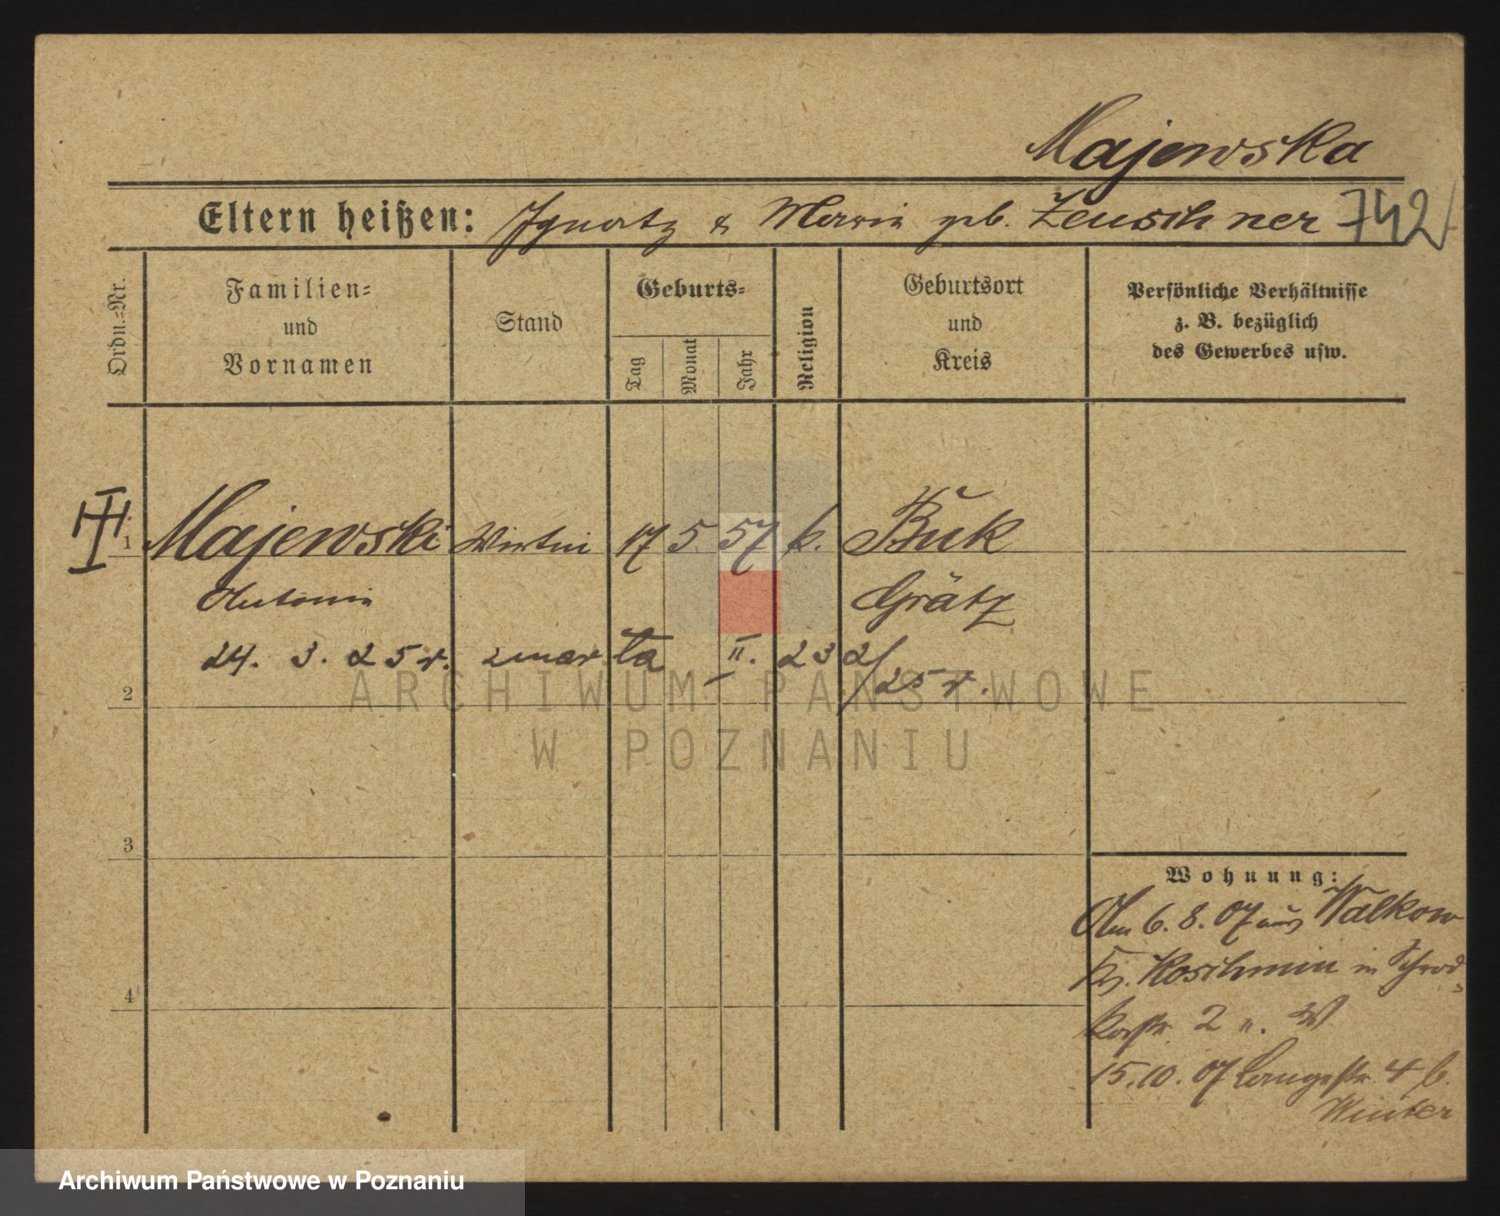 Majewska
Eltern heißen: Ignatz & Maria geb. Zeuschner 742
Ordn.-Nr.
Familien-
und
Vornamen
Stand
Geburts-
Tag
Monat
Jahr
Religion
Geburtsort
und
Kreis
Persönliche Verhältnisse
z. B. bezüglich
des Gewerbes usw.
1 Majewski Wirtin 17 5. 57 k. Buk
Antonie Grätz
24. 3. 25 r. zmarła II. 23 2/25 r.
2
ARCHIWUM PAŃSTWOWE
W POZNANIU
3
Wohnung:
Am 6. 8. 07 aus Walkow
Kr. Koschmin in
4
2
15. 10. 07 Langestr. 4 b.
Winter
Archiwum Państwowe w Poznaniu